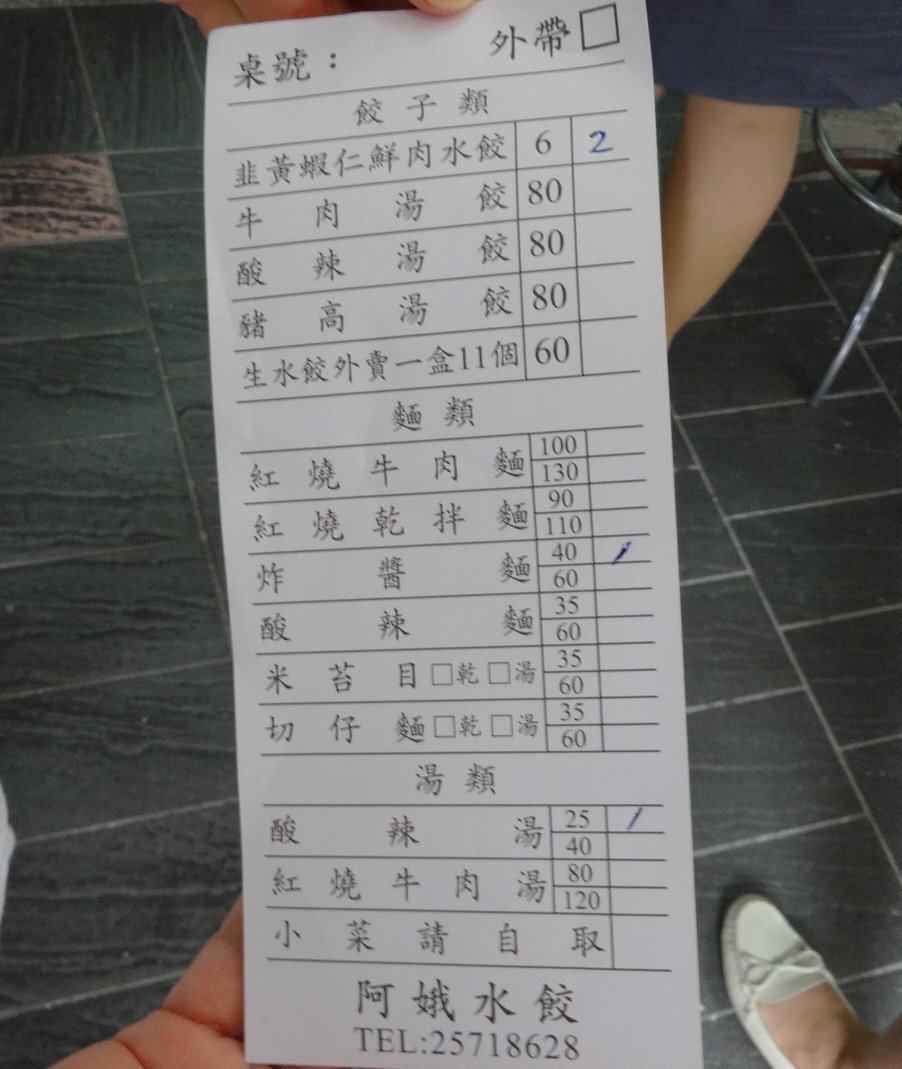 桌號： 外帶□
餃子類
韭黃蝦仁鮮肉水餃 6 2
牛肉湯餃 80
酸辣湯餃 80
豬高湯餃 80
生水餃外賣一盒11個 60
麵類
紅燒牛肉麵 100
130
紅燒乾拌麵 90
110
炸醬麵 40 /
60
酸辣麵 35
60
米苔目□乾□湯 35
60
切仔麵□乾□湯 35
60
湯類
酸辣湯 25 /
40
紅燒牛肉湯 80
120
小菜請自取
阿娥水餃
TEL:25718628